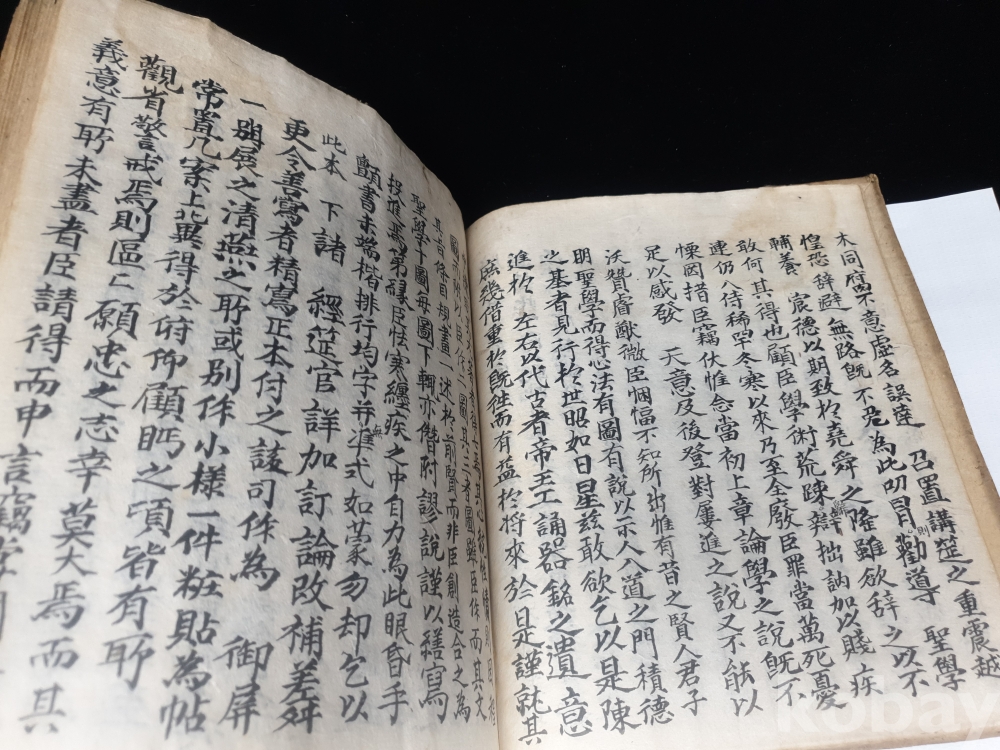 木同腐不意虛名誤達 召置講筵之重震越
惶恐辭避無路旣不免為此叨冒則勸導 聖學
輔養 宸德以期致於堯舜之隆雖欲辭之以不
敢何其得也顧臣學術荒踈辭辯拙訥加以賤疾
連仍入侍稀罕冬寒以來乃至全廢臣罪當萬死憂
慄罔措臣竊伏惟念當初上章論學之說旣不
足以感發 天意及後登對屢進之說又不能以
沃贊睿猷微臣悃愊不知所出惟有昔之賢人君子
明聖學而得心法有圖有說以示人入道之門積德
之基者見行於世昭如日星玆敢欲乞以是陳
進於 左右以代古者帝王工誦器銘之遺意
庶幾借重於旣往而有益於將來於是謹就其
圖而附以臣作二圖其三者圖雖臣作而其文
其旨條目規畫一述於前賢而非臣創造合之為
聖學十圖每圖下輒亦僭附謬說謹以繕寫
投進焉第緣臣怯寒纏疾之中自力為此眼昏手
顫書未端楷排行均字并無準式如蒙勿却乞以
此本 下諸 經筵官詳加訂論改補差舛
更令善寫者精寫正本付之該司作為 御屏
一明展之清燕之所或別作小樣一件粧貼為帖
常置几案上冀得於俯仰顧眄之頃皆有所
觀省警戒焉則區〻願忠之志幸莫大焉而其
義意有所未盡者臣請得而申 言竊
kobay